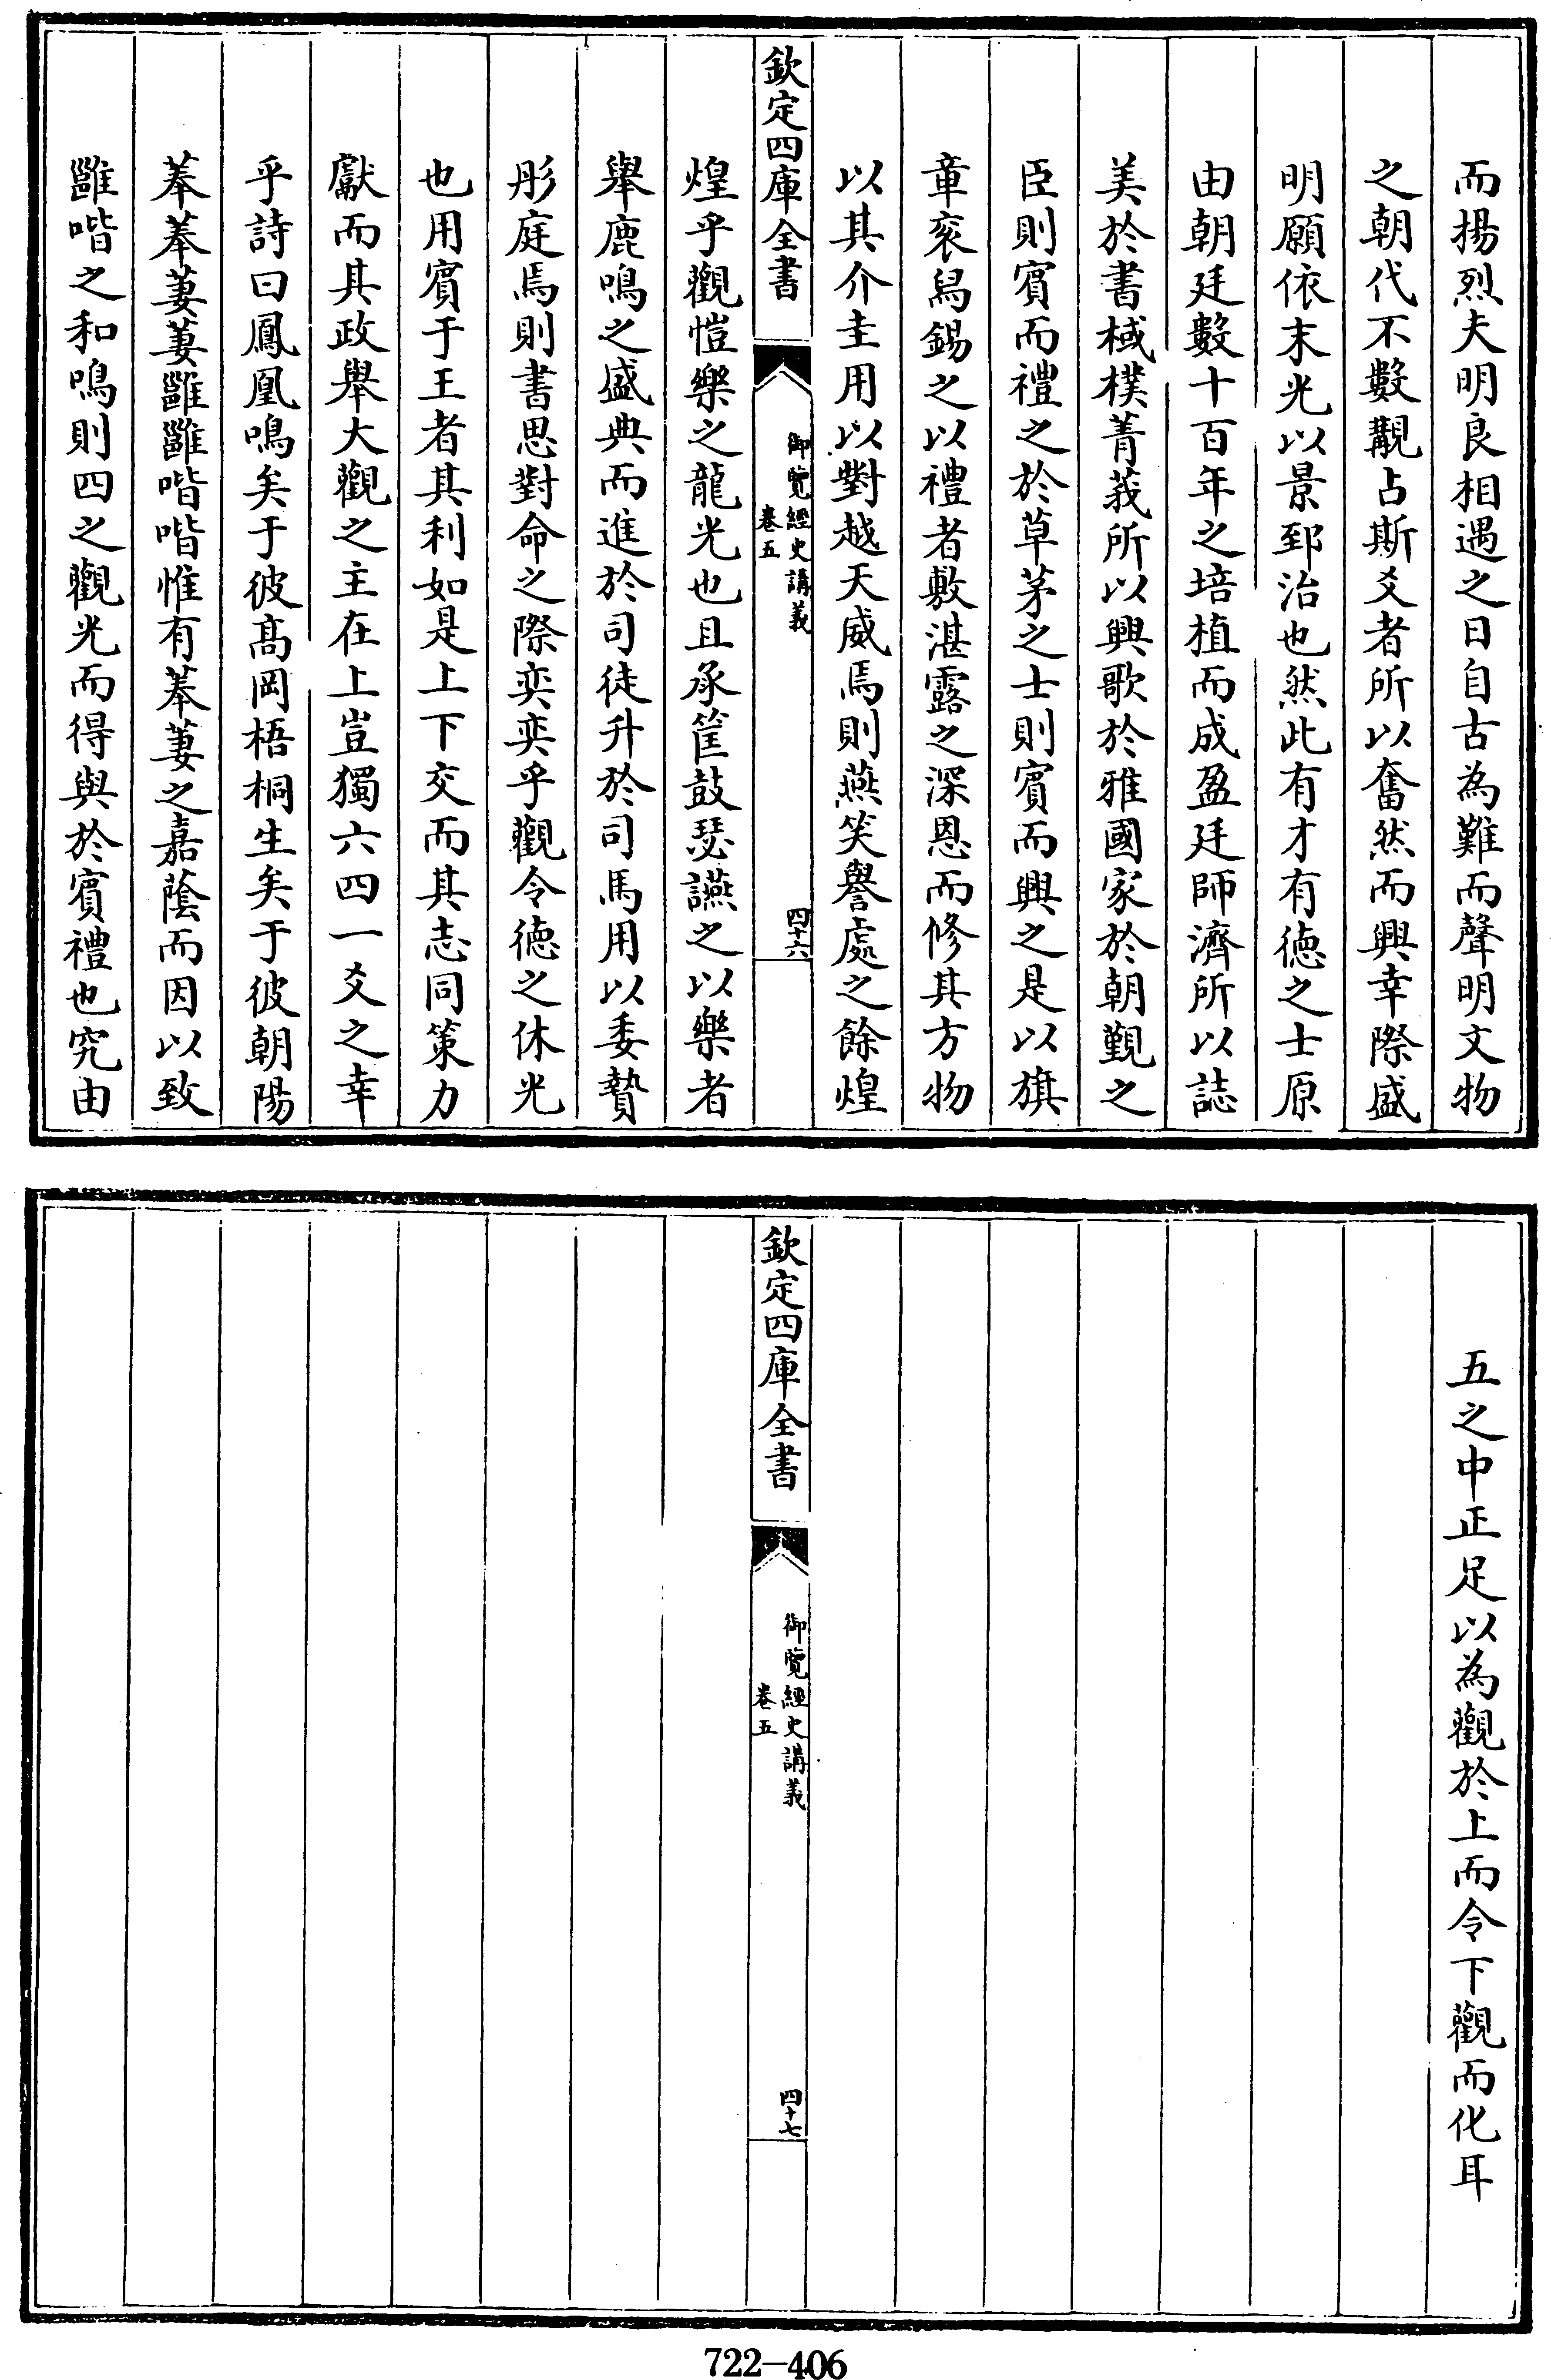 而揚烈夫明良相遇之日自古為難而聲明文物
之朝代不數覯占斯爻者所以奮然而興幸際盛
明願依末光以景郅治也然此有才有德之士原
由朝廷數十百年之培植而成盈廷師濟所以誌
美於書棫樸菁莪所以興歌於雅國家於朝覲之
臣則賓而禮之於草茅之士則賓而興之是以旗
章衮舄錫之以禮者敷湛露之深恩而修其方物
以其介圭用以對越天威焉則燕笑譽處之餘煌
欽定四庫全書
御覽經史講義
卷五
四十六
煌乎觀愷樂之龍光也且承筐鼓瑟讌之以樂者
舉鹿鳴之盛典而進於司徒升於司馬用以委贄
彤庭焉則書思對命之際奕奕乎觀令德之休光
也用賓于王者其利如是上下交而其志同策力
獻而其政舉大觀之主在上豈獨六四一爻之幸
乎詩曰鳳凰鳴矣于彼髙岡梧桐生矣于彼朝陽
菶菶萋萋雝雝喈喈惟有菶萋之嘉蔭而因以致
雝喈之和鳴則四之觀光而得與於賓禮也究由
五之中正足以為觀於上而令下觀而化耳
欽定四庫全書
御覽經史講義
卷五
四十七
722-406